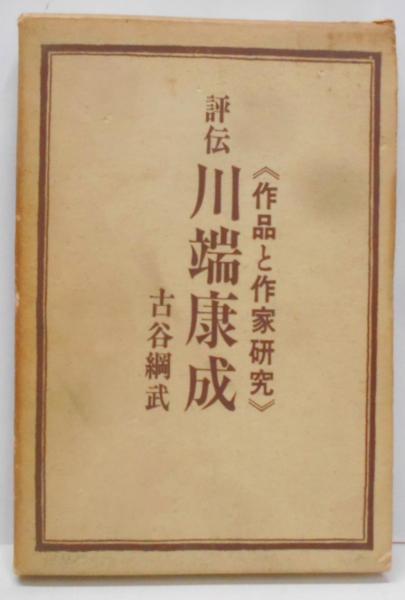 《作品と作家研究》
評伝 川端康成
古谷綱武